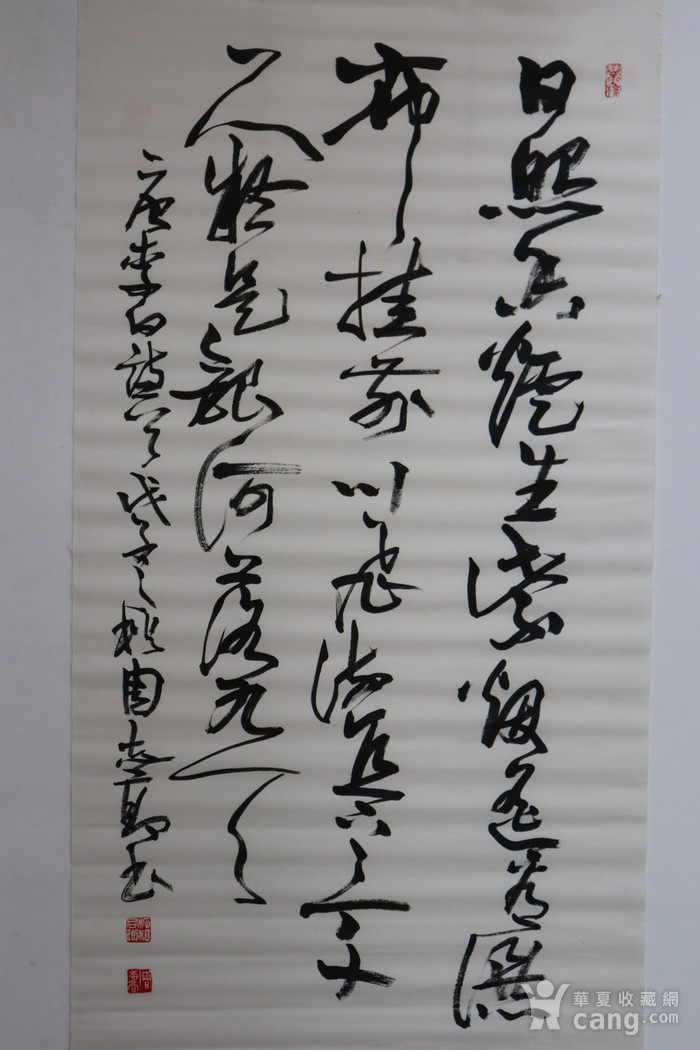 日照香爐生紫煙遙看瀑
布挂前川飛流直下三千
尺疑是銀河落九天
唐李白詩 戊子之秋 周志 書
華夏收藏網
cang.com